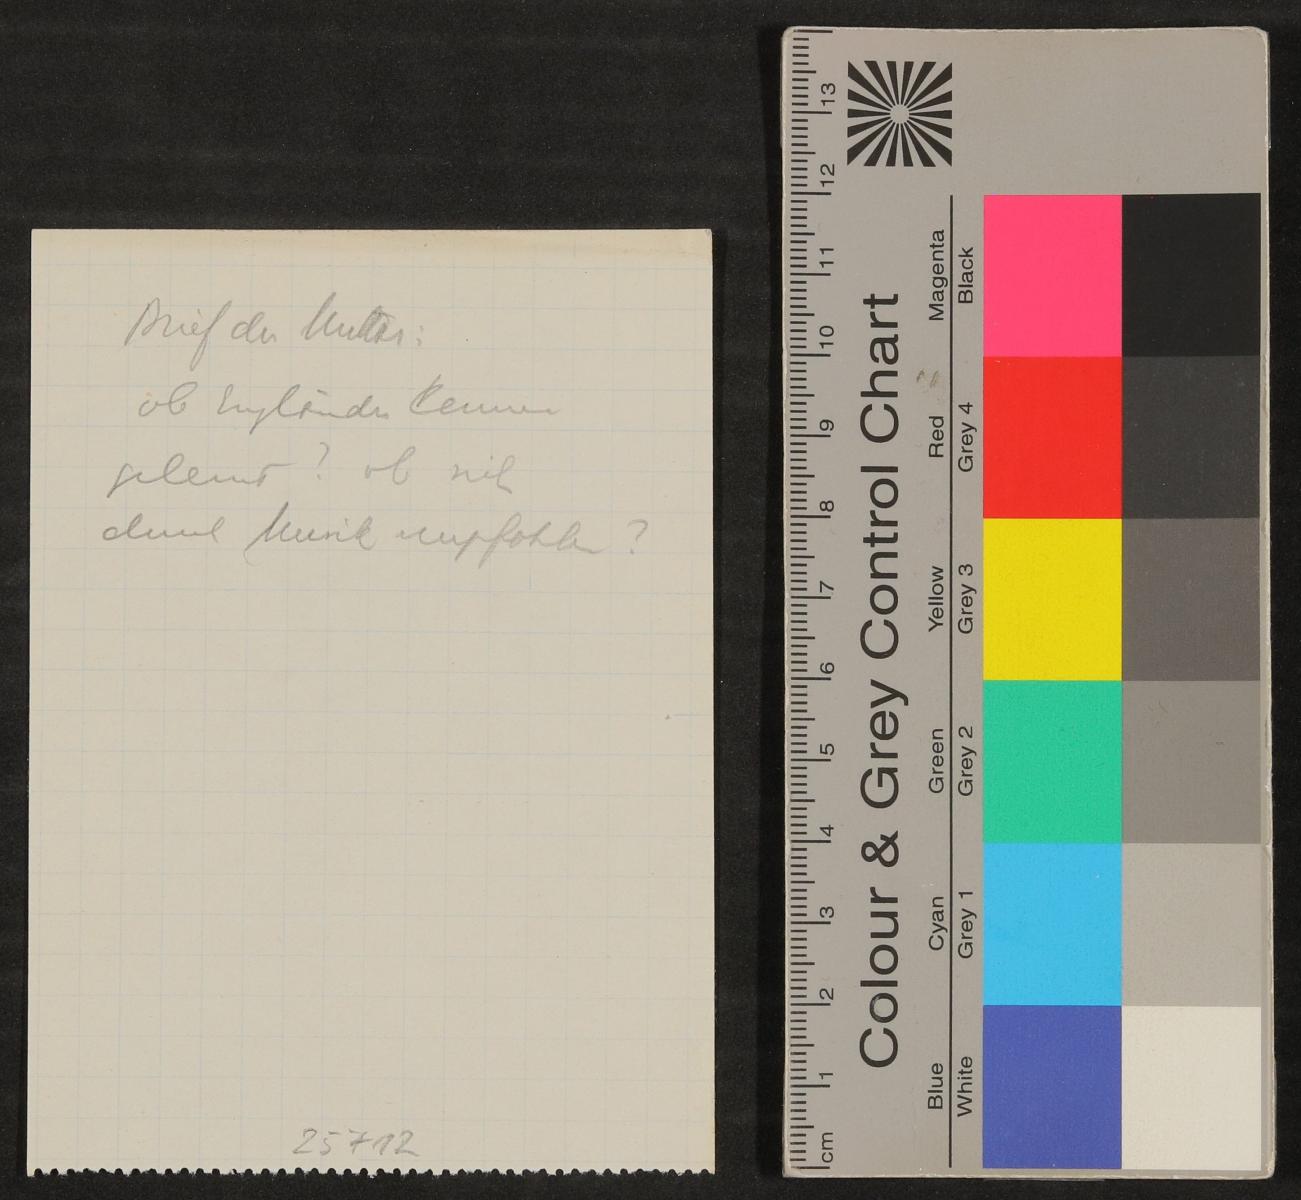 Brief der Mutter:
ob Engländer kennen
gelernt? ob sich
durch Musik empfohlen?
25712
Colour & Grey Control Chart
Blue Cyan Green Yellow Red Magenta
White Grey 1 Grey 2 Grey 3 Grey 4 Black
cm 1 2 3 4 5 6 7 8 9 10 11 12 13